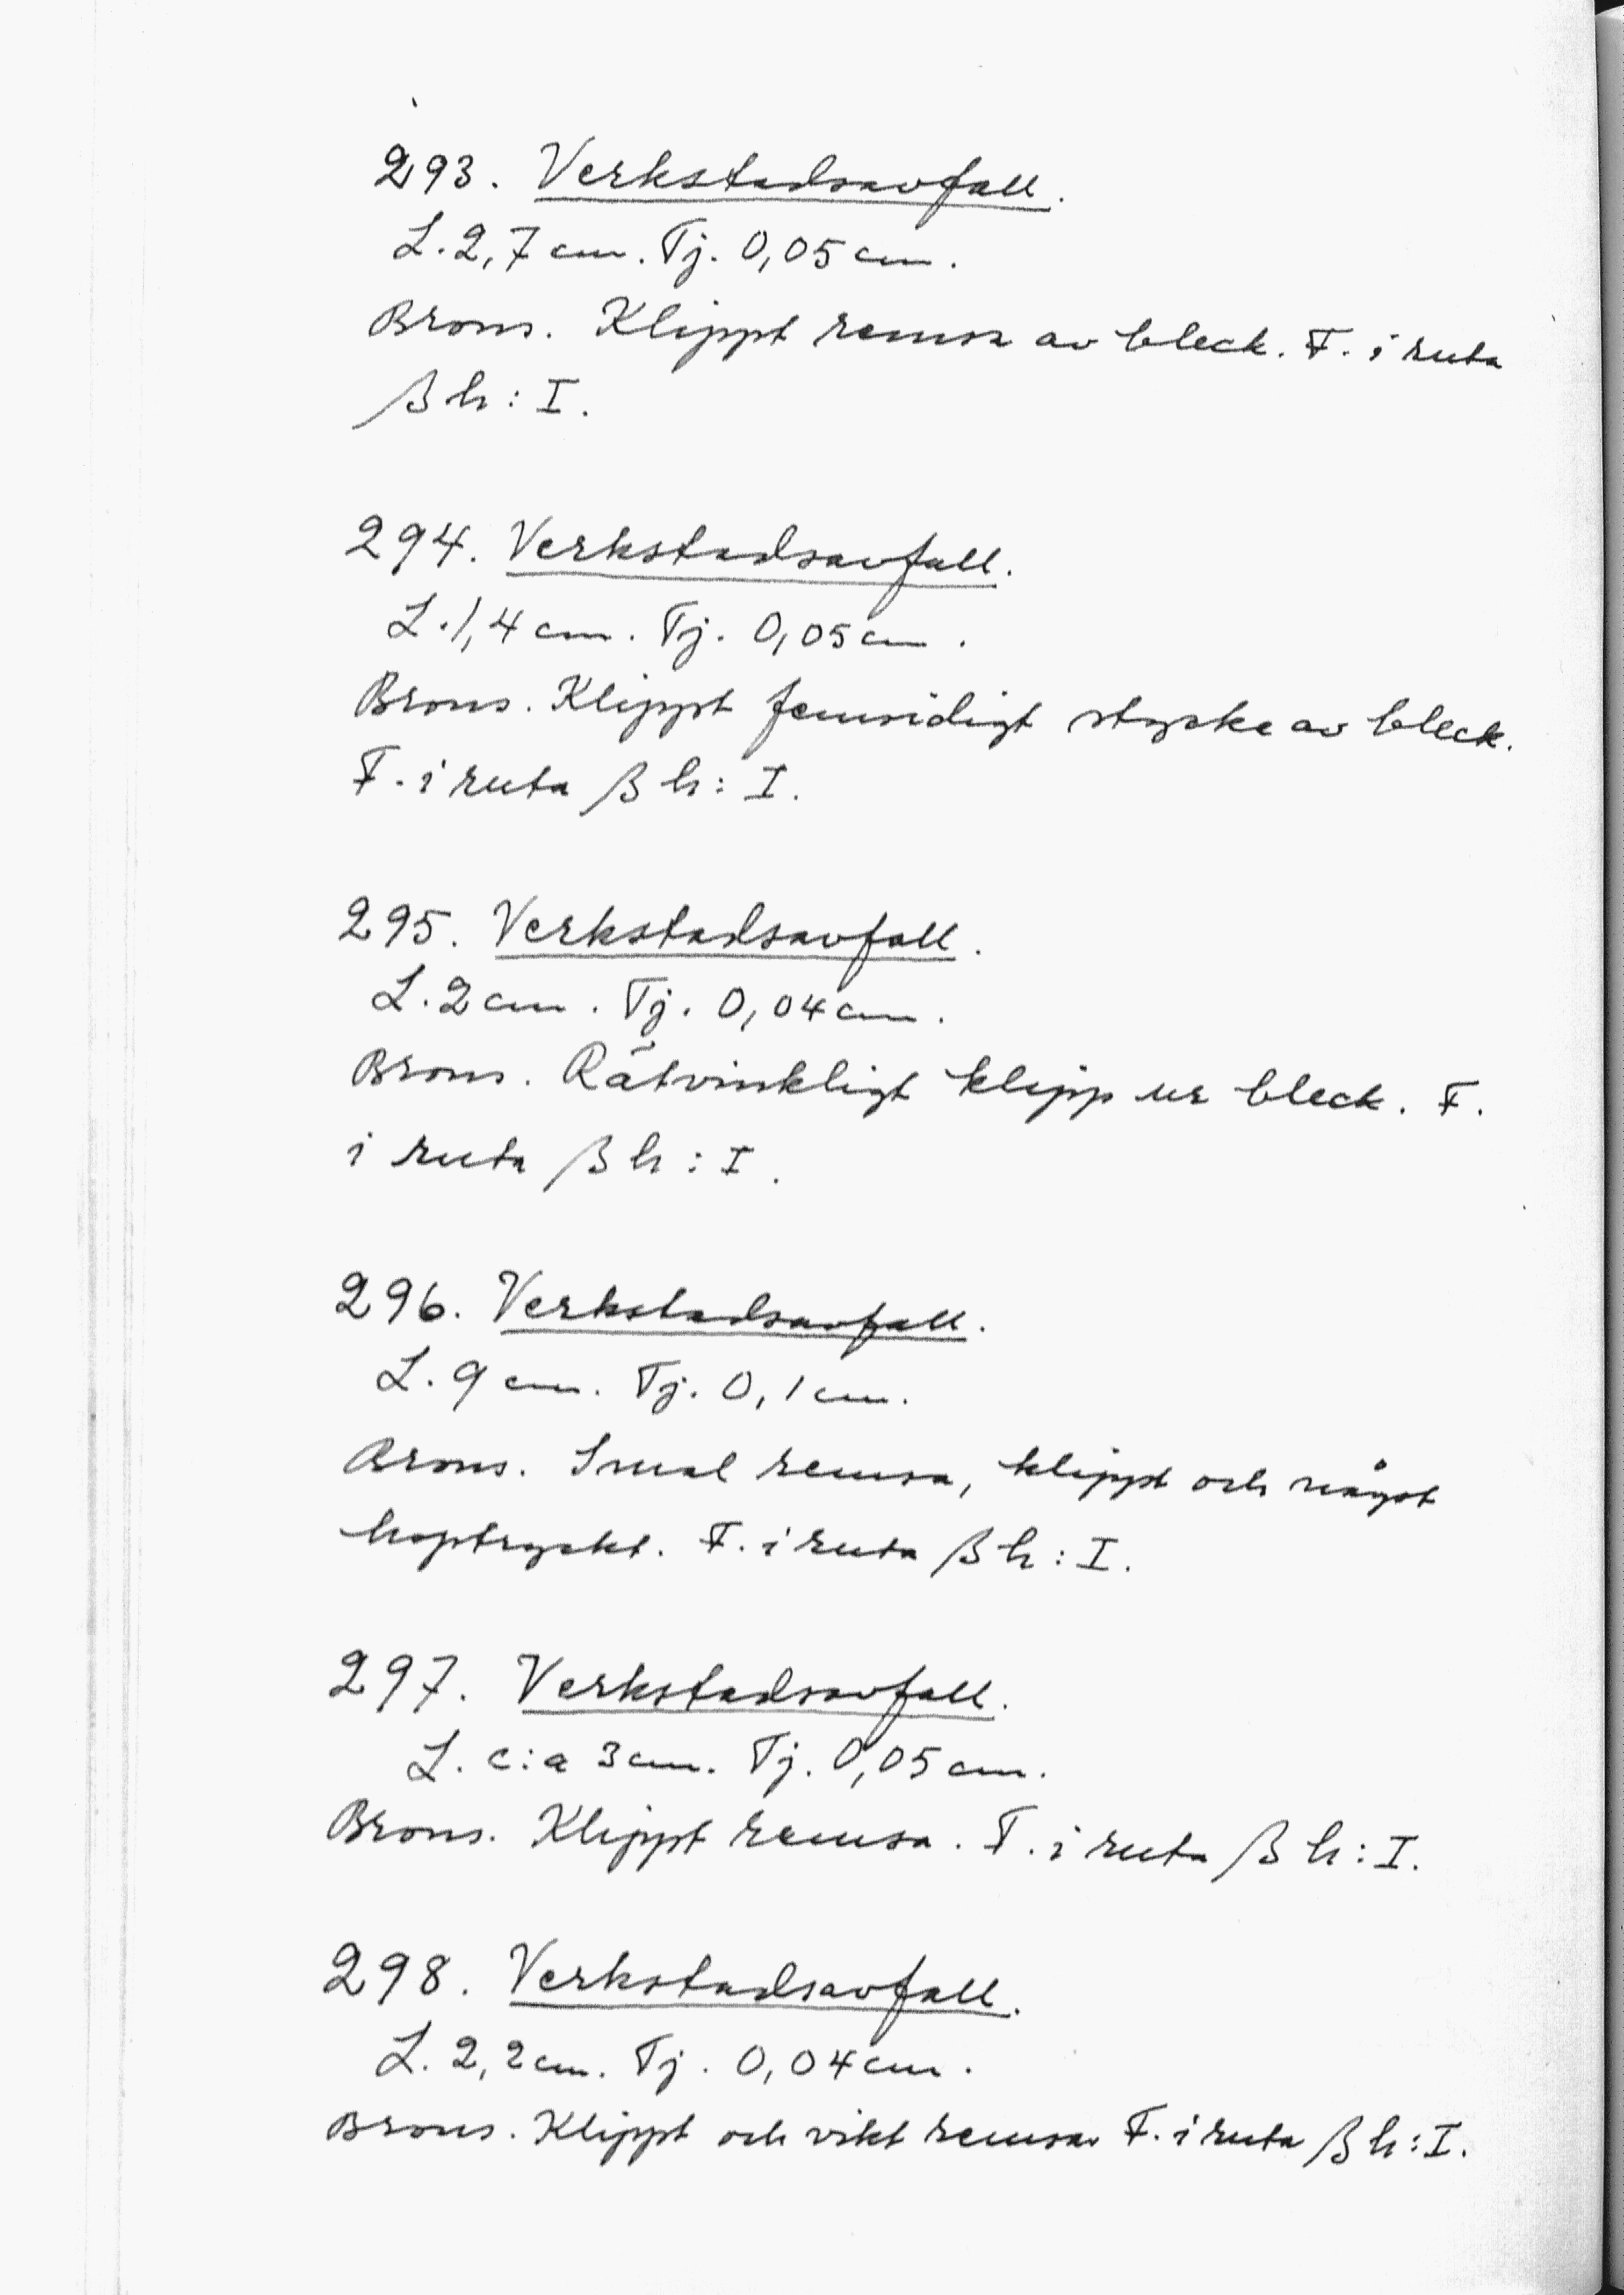 293. Verkstadsavfall.
L. 2,7 cm. Tj. 0,05 cm.
Brons. Klippt remsa av bleck. F. i ruta
β h : I.
294. Verkstadsavfall.
L. 1,4 cm. Tj. 0,05 cm.
Brons. Klippt femsidigt stycke av bleck.
F. i ruta β h : I.
295. Verkstadsavfall.
L. 2 cm. Tj. 0,04 cm.
Brons. Rätvinkligt klipp ur bleck. F.
i ruta β h : I.
296. Verkstadsavfall.
L. 9 cm. Tj. 0,1 cm.
Brons. Smal remsa, klippt och något
hoptryckt. F. i ruta β h : I.
297. Verkstadsavfall.
L. c:a 3 cm. Tj. 0,05 cm.
Brons. Klippt remsa. F. i ruta β h : I.
298. Verkstadsavfall.
L. 2,2 cm. Tj. 0,04 cm.
Brons. Klippt och vikt remsa. F. i ruta β h : I.